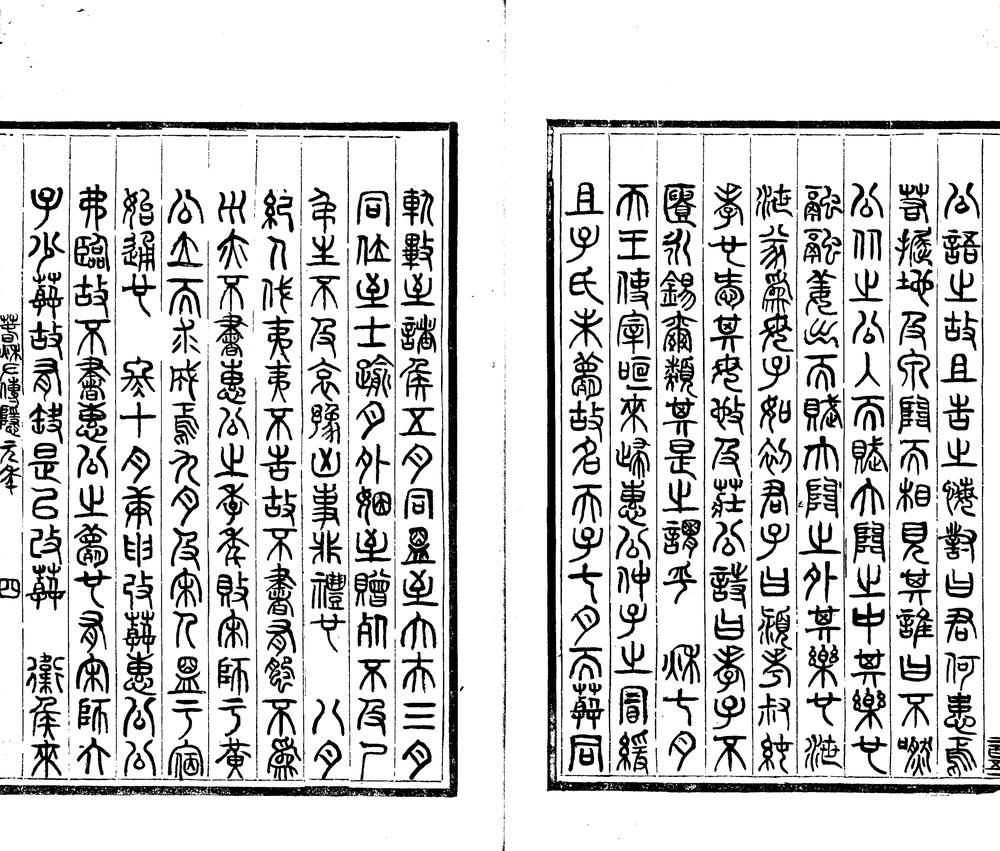 公語之故且告之悔對曰君何患焉
若掘地及泉隧而相見其誰曰不然
公从之公入而賦大隧之中其樂也
融融姜出而賦大隧之外其樂也洩
洩遂為母子如初君子曰潁考叔純
孝也愛其母施及莊公詩曰孝子不
匱永錫爾類其是之謂乎　秋七月
天王使宰咺來歸惠公仲子之賵緩
且子氏未薨故名天子七月而葬同
軌畢至諸侯五月同盟至大夫三月
同位至士踰月外姻至贈死不及尸
弔生不及哀豫凶事非禮也　八月
紀人伐夷夷不告故不書有蜚不為
災亦不書惠公之季年敗宋師于黃
公立而求成焉九月及宋人盟于宿
始通也　冬十月庚申改葬惠公公
弗臨故不書惠公之薨也有宋師太
子少葬故有缺是以改葬　衛侯來
春秋左傳隱元年　四